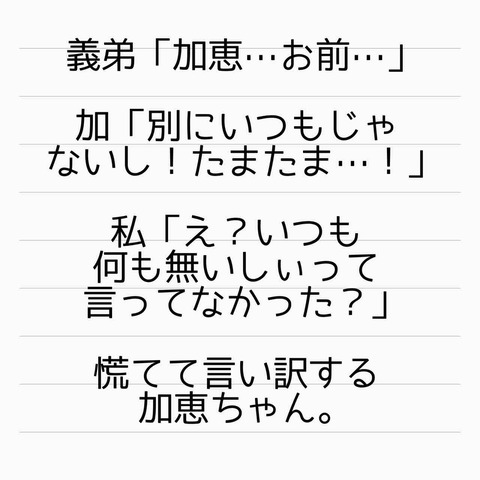 義弟「加恵…お前…」
加「別にいつもじゃ
ないし！たまたま…！」
私「え？いつも
何も無いしぃって
言ってなかった？」
慌てて言い訳する
加恵ちゃん。